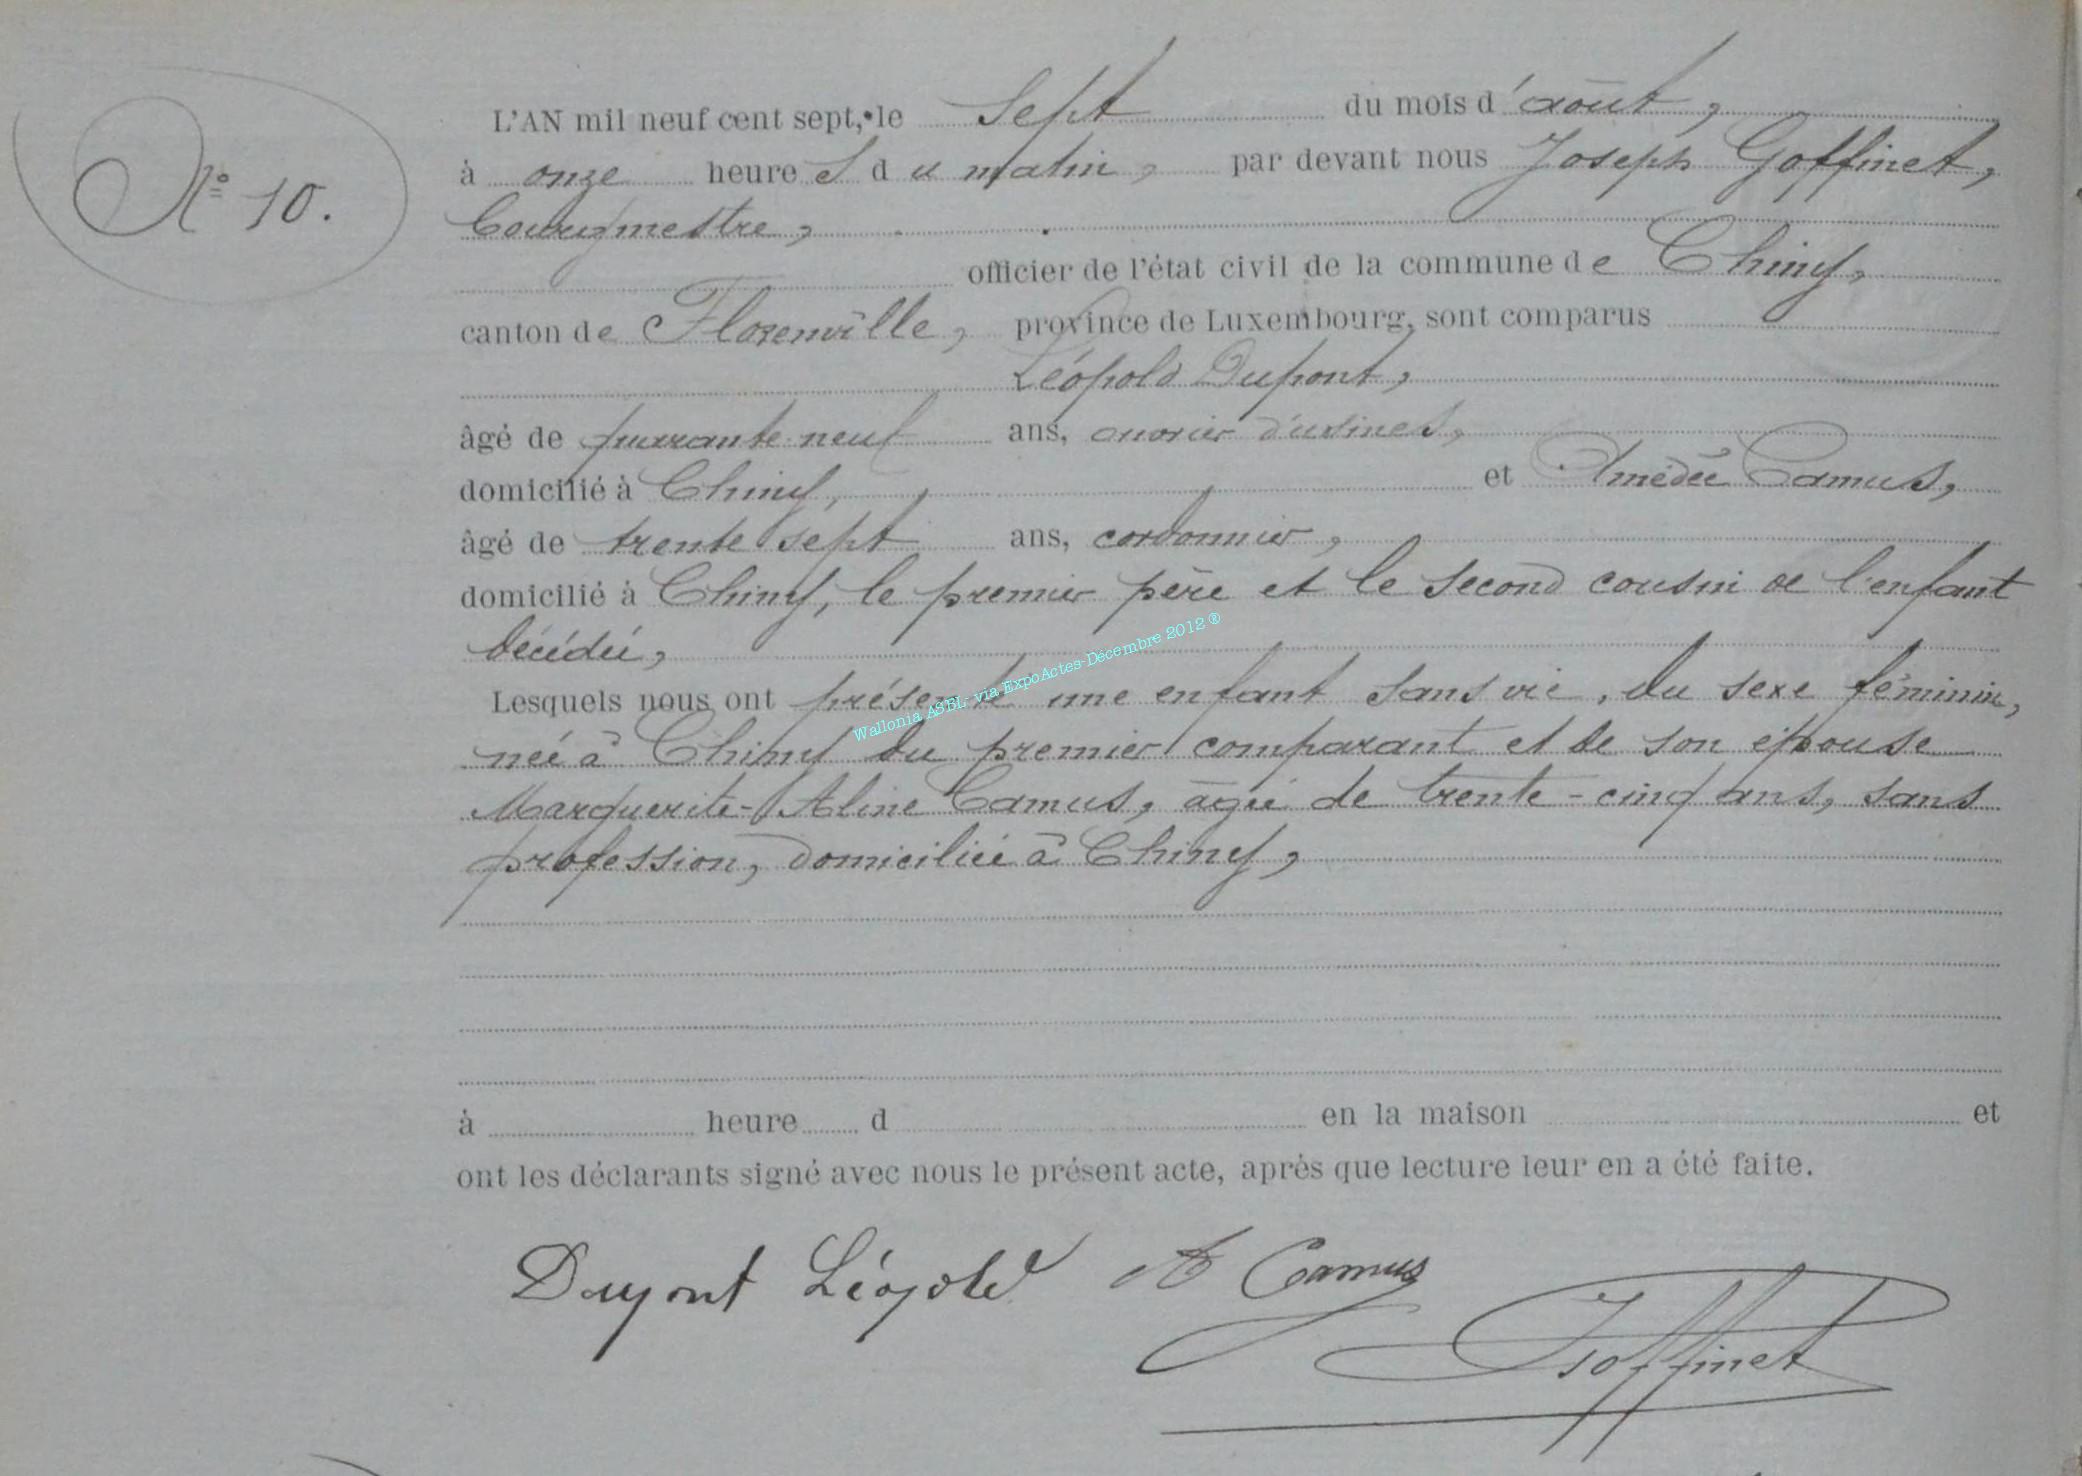 N° 10.
L'AN mil neuf cent sept, le Sept du mois d'août,
à onze heures du matin, par devant nous Joseph Goffinet,
bourgmestre,
officier de l'état civil de la commune de Chiny,
canton de Florenville, province de Luxembourg, sont comparus
Léopold Dupont,
âgé de quarante-neuf ans, ouvrier d'usines,
domicilié à Chiny, et Amédée Camus,
âgé de trente sept ans, cordonnier,
domicilié à Chiny, le premier père et le second cousin de l'enfant
décédée,
Lesquels nous ont présenté une enfant sans vie, du sexe féminin,
née à Chiny du premier comparant et de son épouse
Marguerite-Aline Camus, âgée de trente-cinq ans, sans
profession, domiciliée à Chiny,
à heure d en la maison et
ont les déclarants signé avec nous le présent acte, après que lecture leur en a été faite.
Dupont Léopold A Camus
JGoffinet
Wallonia ASBL- via ExpoActes-Décembre 2012 ®